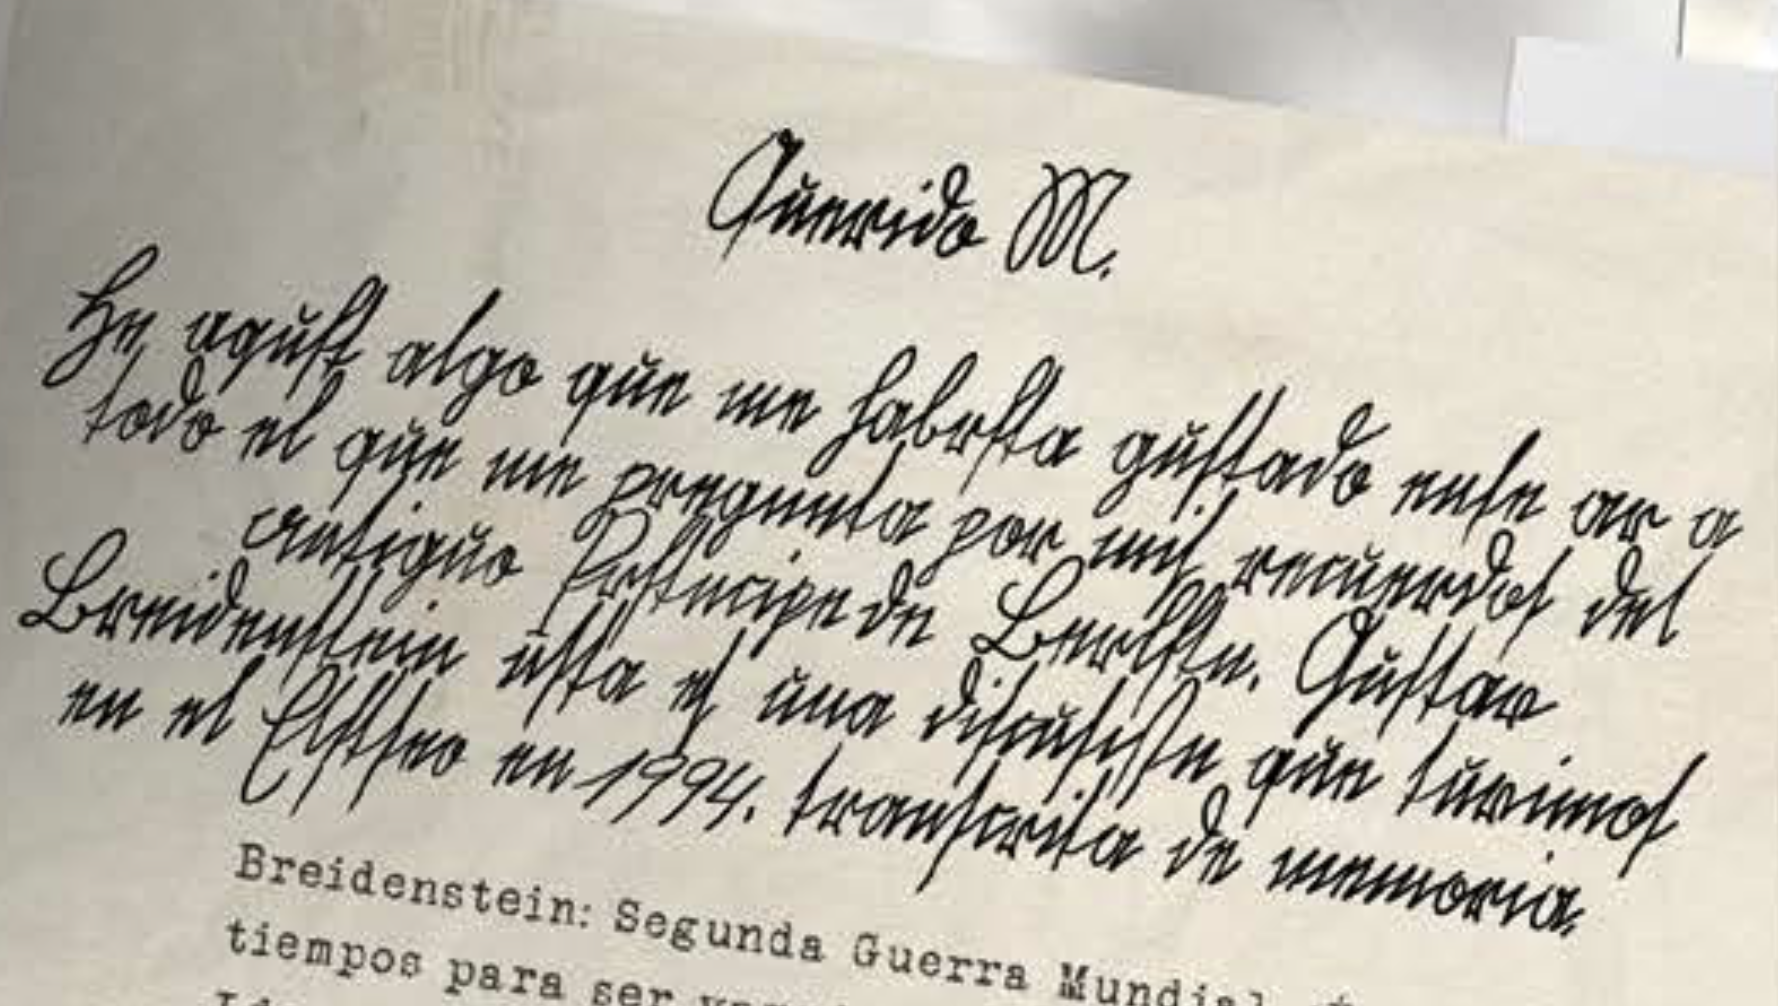 Querido M.
He aquí algo que me habría gustado enseñar a
todo el que me pregunta por mis recuerdos del
antiguo Príncipe de Berlín. Gustav
Breidenstein ésta es una discusión que tuvimos
en el Elíseo en 1994, transcrita de memoria.
Breidenstein: Segunda Guerra Mundial
tiempos para ser